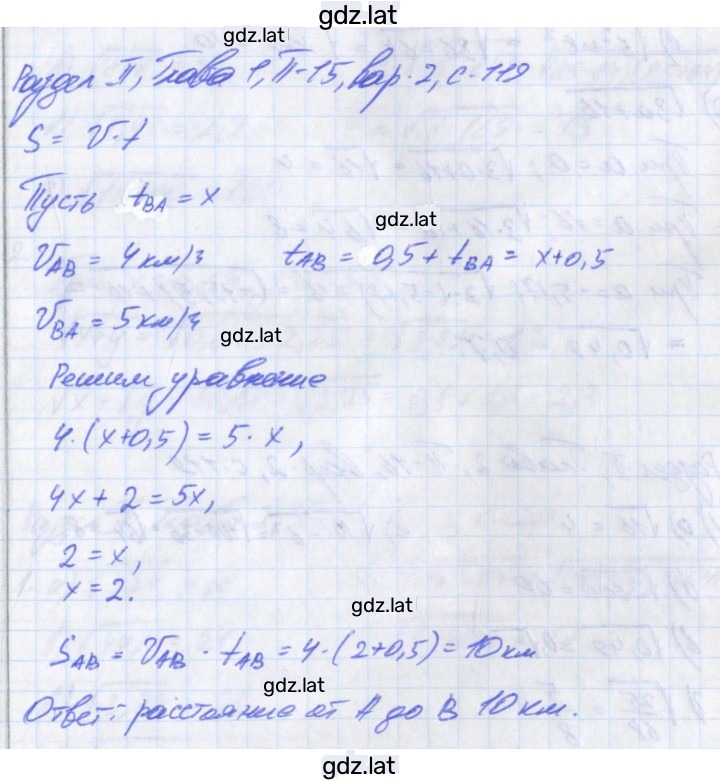 gdz.lat
gdz.lat
Раздел II, Глава 1, П-15, вар. 2, с. 119
S = V·t
Пусть t_BA = x
gdz.lat
V_AB = 4 км/ч t_AB = 0,5 + t_BA = x+0,5
V_BA = 5 км/ч
gdz.lat
Решим уравнение
4·(x+0,5) = 5·x,
4x + 2 = 5x,
2 = x,
x = 2.
gdz.lat
S_AB = V_AB · t_AB = 4·(2+0,5) = 10 км
gdz.lat
Ответ: расстояние от А до В 10 км.
gdz.lat